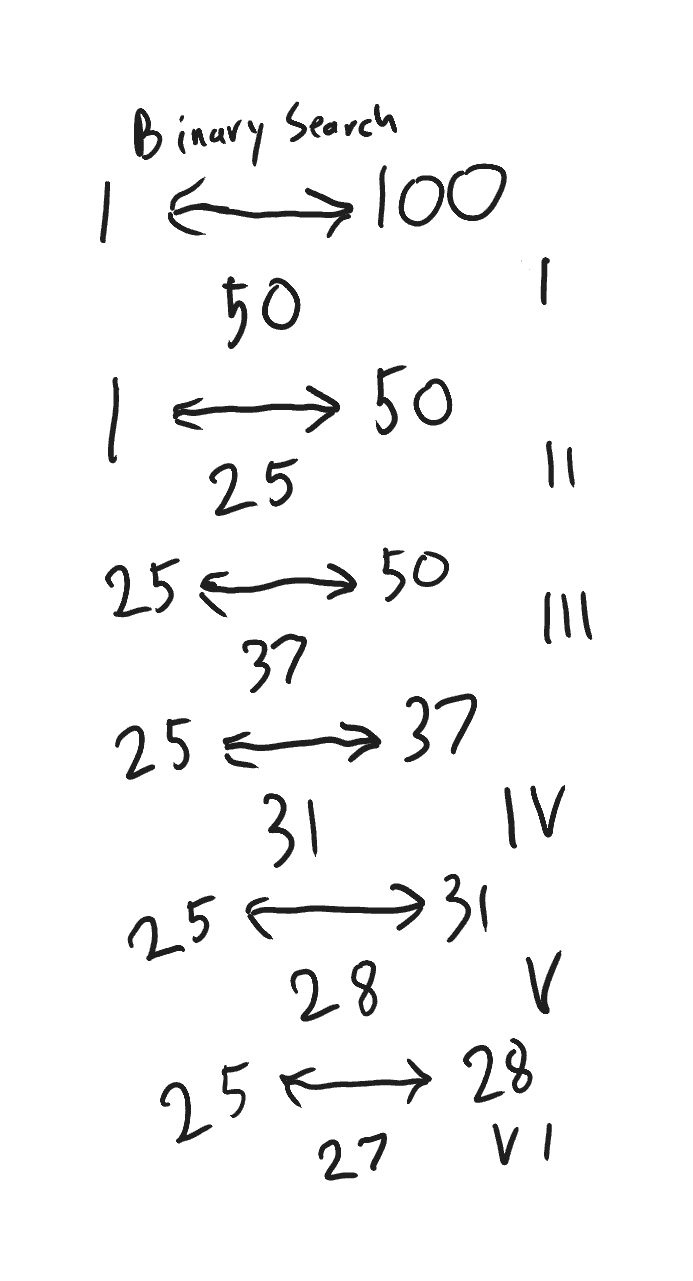 Binary Search
1 ↔ 100
50 I
1 ↔ 50
25 II
25 ↔ 50
37 III
25 ↔ 37
31 IV
25 ↔ 31
28 V
25 ↔ 28
27 VI